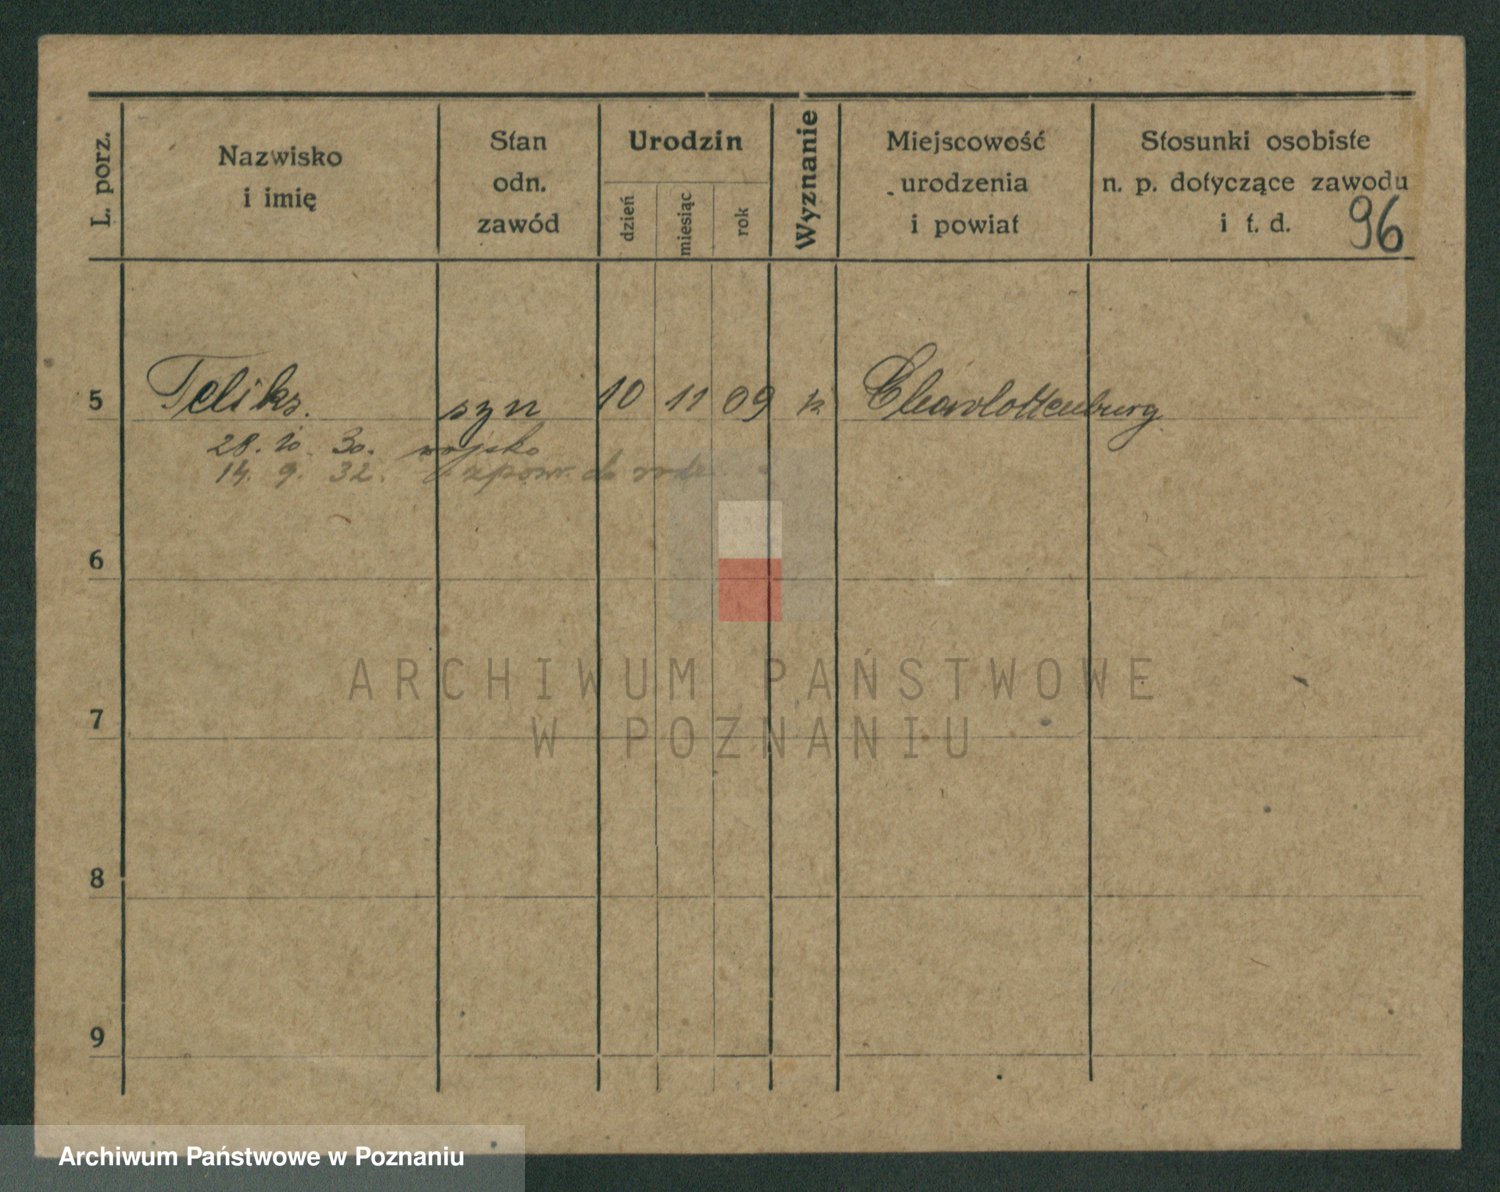 L. porz.
Nazwisko
i imię
Stan
odn.
zawód
Urodzin
dzień
miesiąc
rok
Wyznanie
Miejscowość
urodzenia
i powiat
Stosunki osobiste
n. p. dotyczące zawodu
i t. d.
96
5 Feliks. syn 10 11 09 k Charlottenburg
28. 10. 30. wojsko
14. 9. 32. z pow. do
6
7
8
9
ARCHIWUM PAŃSTWOWE
W POZNANIU
Archiwum Państwowe w Poznaniu